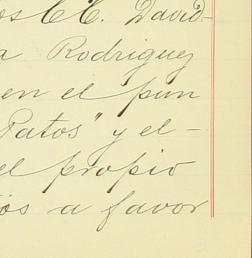 os CC. David-
a Rodriguez
en el pun
Patos" y el -
el propio
os a favor